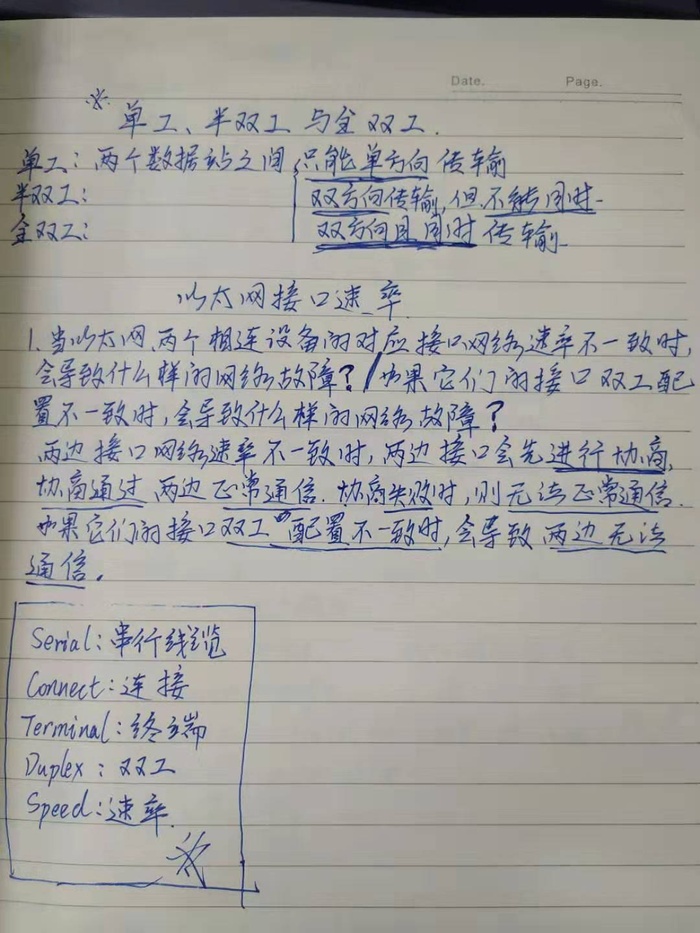 Date. Page.
※ 单工、半双工与全双工.
单工: 两个数据站之间 只能单方向传输
半双工: 双方向传输,但不能同时
全双工: 双方向且同时传输
以太网接口速率
1.当以太网两个相连设备的对应接口网络速率不一致时,
会导致什么样的网络故障?/如果它们的接口双工配
置不一致时,会导致什么样的网络故障?
两边接口网络速率不一致时,两边接口会先进行协商,
协商通过两边正常通信.协商失败时,则无法正常通信.
如果它们的接口双工配置不一致时,会导致两边无法
通信。
Serial:串行线缆
Connect:连接
Terminal:终端
Duplex:双工
Speed:速率.